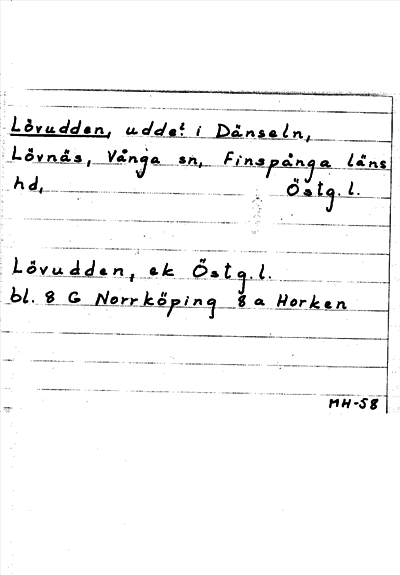 Lövudden, udde i Dänseln,
Lövnäs, Vånga sn, Finspånga läns
hd, Östg. l.
Lövudden, ek Östg. l.
bl. 8 G Norrköping 8 a Horken
MH-58